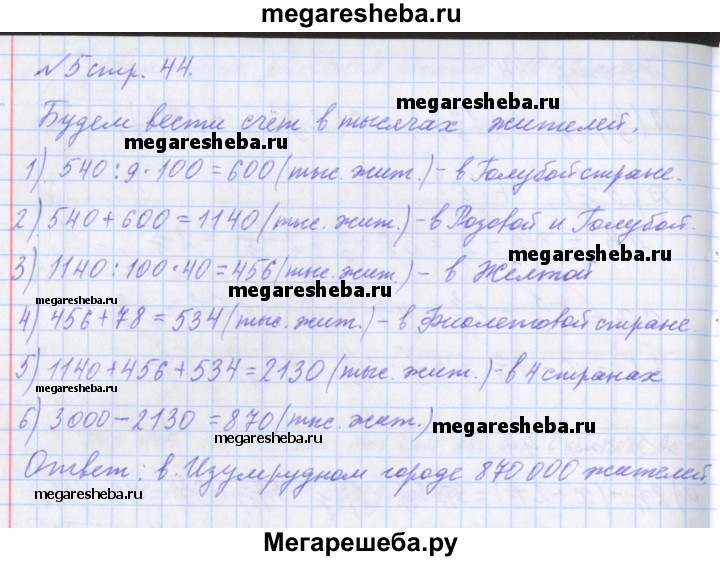 megaresheba.ru
№5 стр. 44.
Будем вести счёт в тысячах жителей.
megaresheba.ru
megaresheba.ru
1) 540 : 9 · 100 = 600 (тыс. жит.) - в Голубой стране.
2) 540 + 600 = 1140 (тыс. жит.) - в Розовой и Голубой.
megaresheba.ru
3) 1140 : 100 · 40 = 456 (тыс. жит.) - в Желтой
megaresheba.ru
megaresheba.ru
4) 456 + 78 = 534 (тыс. жит.) - в Фиолетовой стране.
megaresheba.ru
5) 1140 + 456 + 534 = 2130 (тыс. жит.) - в 4 странах
megaresheba.ru
6) 3000 - 2130 = 870 (тыс. жит.)
megaresheba.ru
megaresheba.ru
Ответ: в Изумрудном городе 870 000 жителей.
megaresheba.ru
megaresheba.ru
Мегарешеба.ру